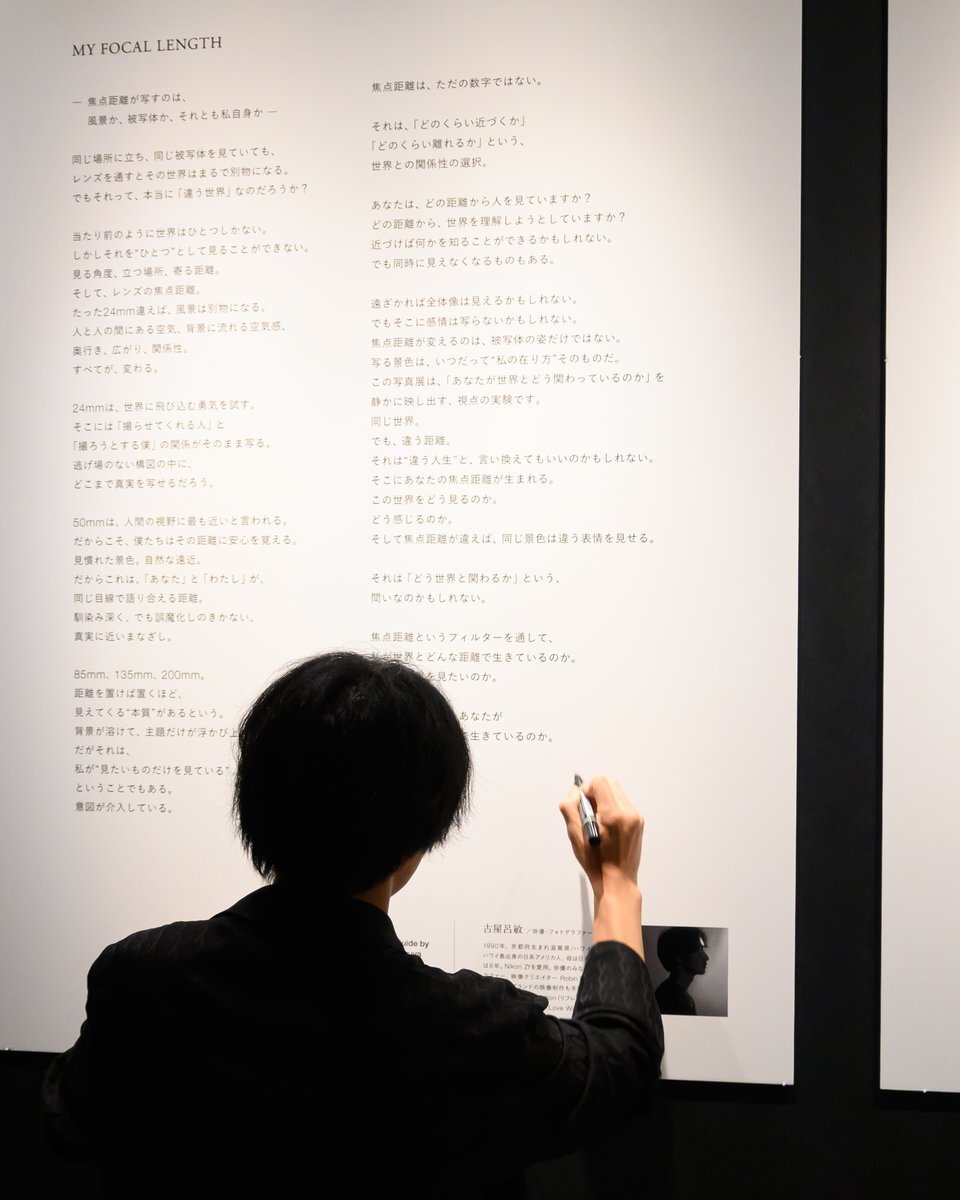 MY FOCAL LENGTH
― 焦点距離が写すのは、
風景か、被写体か、それとも私自身か ―
同じ場所に立ち、同じ被写体を見ていても、
レンズを通すとその世界はまるで別物になる。
でもそれって、本当に「違う世界」なのだろうか？
当たり前のように世界はひとつしかない。
しかしそれを“ひとつ”として見ることができない。
見る角度、立つ場所、寄る距離。
そして、レンズの焦点距離。
たった24mm違えば、風景は別物になる。
人と人の間にある空気、背景に流れる空気感、
奥行き、広がり、関係性。
すべてが、変わる。
24mmは、世界に飛び込む勇気を試す。
そこには「撮らせてくれる人」と
「撮ろうとする僕」の関係がそのまま写る。
逃げ場のない構図の中に、
どこまで真実を写せるだろう。
50mmは、人間の視野に最も近いと言われる。
だからこそ、僕たちはその距離に安心を覚える。
見慣れた景色。自然な遠近。
だからこれは、「あなた」と「わたし」が、
同じ目線で語り合える距離。
馴染み深く、でも誤魔化しのきかない、
真実に近いまなざし。
85mm、135mm、200mm。
距離を置けば置くほど、
見えてくる“本質”があるという。
背景が溶けて、主題だけが浮かび上
だがそれは、
私が“見たいものだけを見ている”
ということでもある。
意図が介入している。
焦点距離は、ただの数字ではない。
それは、「どのくらい近づくか」
「どのくらい離れるか」という、
世界との関係性の選択。
あなたは、どの距離から人を見ていますか？
どの距離から、世界を理解しようとしていますか？
近づけば何かを知ることができるかもしれない。
でも同時に見えなくなるものもある。
遠ざかれば全体像は見えるかもしれない。
でもそこに感情は写らないかもしれない。
焦点距離が変えるのは、被写体の姿だけではない。
写る景色は、いつだって“私の在り方”そのものだ。
この写真展は、「あなたが世界とどう関わっているのか」を
静かに映し出す、視点の実験です。
同じ世界。
でも、違う距離。
それは“違う人生”と、言い換えてもいいのかもしれない。
そこにあなたの焦点距離が生まれる。
この世界をどう見るのか。
どう感じるのか。
そして焦点距離が違えば、同じ景色は違う表情を見せる。
それは「どう世界と関わるか」という、
問いなのかもしれない。
焦点距離というフィルターを通して、
が世界とどんな距離で生きているのか。
を見たいのか。
あなたが
生きているのか。
uide by
古屋呂敏 ／俳優・フォトグラファー
1990年、京都府生まれ滋賀県/ハワイ
ハワイ島出身の日系アメリカ人、母は日
は8年。Nikon Zfを愛用。俳優のみな
映像クリエイター Robin
ランドの映像制作も
ion（リフレ
Love W